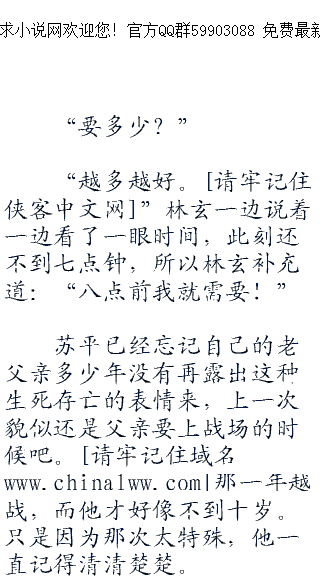 求小说网欢迎您！官方QQ群59903088 免费最新
“要多少？”
“越多越好。[请牢记住
侠客中文网]”林玄一边说着
一边看了一眼时间，此刻还
不到七点钟，所以林玄补充
道：“八点前我就需要！”
苏平已经忘记自己的老
父亲多少年没有再露出这种
生死存亡的表情来，上一次
貌似还是父亲要上战场的时
候吧。[请牢记住域名
www.china1ww.com|那一年越
战，而他才好像不到十岁。
只是因为那次太特殊，他一
直记得清清楚楚。